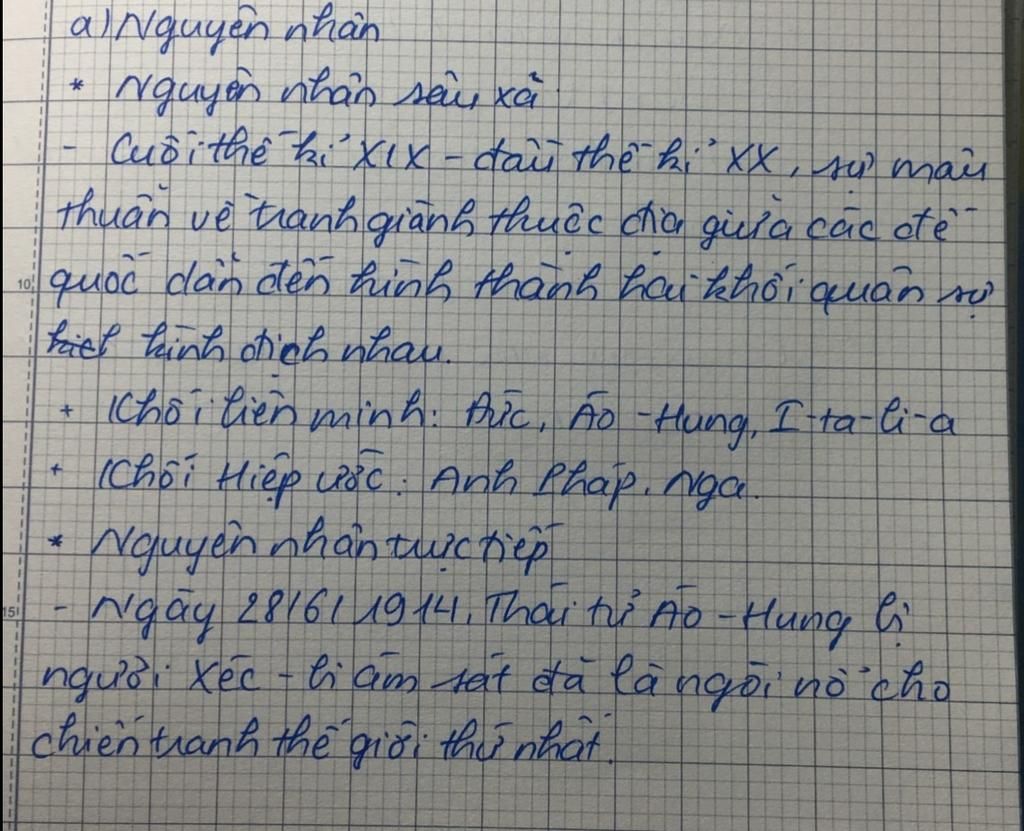 a) Nguyên nhân
* Nguyên nhân sâu xa
- Cuối thế kỉ XIX - đầu thế kỉ XX, sự mâu
thuẫn về tranh giành thuộc địa giữa các đế
10 quốc dẫn đến hình thành hai khối quân sự
kình địch nhau.
+ Khối liên minh: Đức, Áo - Hung, I-ta-li-a
+ Khối Hiệp ước: Anh Pháp, Nga.
* Nguyên nhân trực tiếp
15 - Ngày 28/6/1914, Thái tử Áo - Hung bị
người Xéc - bi ám sát đã là ngòi nổ cho
chiến tranh thế giới thứ nhất.